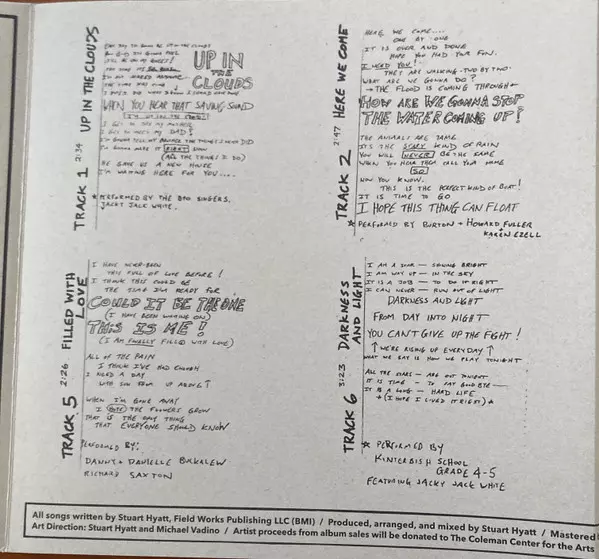 TRACK 1 2:34 UP IN THE CLOUDS
UP IN
THE
CLOUDS
WHEN YOU HEAR THAT SAVING SOUND
I GET TO SEE MY MOTHER
I GET TO MEET MY DAD!
I'M GONNA TELL MY BROTHER THE THINGS I WISH I DID
I'M GONNA MAKE IT RIGHT NOW
(ALL THE THINGS I DO)
HE GAVE US A NEW HOUSE
I'M WAITING HERE FOR YOU....
* PERFORMED BY THE BBQ SINGERS,
JACKY JACK WHITE.
TRACK 2 2:47 HERE WE COME
HERE WE COME....
ONE AT ONE
IT IS OVER AND DONE
HOPE YOU HAD YOUR FUN.
I NEED YOU!
THEY ARE WALKING TWO BY TWO
WHAT ARE WE GONNA DO?
→ THE FLOOD IS COMING THROUGH ←
HOW ARE WE GONNA STOP
THE WATER COMING UP?
THE ANIMALS ARE TAME
IT'S THE SCARY KIND OF RAIN
YOU WILL NEVER BE THE SAME
WHEN YOU HEAR THEM CALL YOUR NAME
SO!
NOW YOU KNOW.
THIS IS THE PERFECT KIND OF BOAT!
IT IS TIME TO GO
I HOPE THIS THING CAN FLOAT
* PERFORMED BY BURTON + HOWARD FULLER
KAREN EZELL
TRACK 5 2:26 FILLED WITH LOVE
I HAVE NEVER BEEN
THIS FULL OF LOVE BEFORE!
I THINK THIS COULD BE
THE TIME I'M READY FOR
COULD IT BE THE ONE
(I HAVE BEEN WAITING ON)
THIS IS ME!
(I AM FINALLY FILLED WITH LOVE)
ALL OF THE PAIN
I THINK I'VE HAD ENOUGH
I NEED A DAY
WITH SUN FROM UP ABOVE ↑
WHEN I'M GONE AWAY
I HOPE THE FLOWERS GROW
THAT IS THE ONLY THING
THAT EVERYONE SHOULD KNOW
PERFORMED BY:
DANNY + DANIELLE BUCKALEW
RICHARD SAXTON
TRACK 6 3:23 DARKNESS AND LIGHT
I AM A STAR — SHINING BRIGHT
I AM WAY UP — IN THE SKY
IT IS A JOB — TO DO IT RIGHT
I CAN NEVER — RUN OUT OF LIGHT
DARKNESS AND LIGHT
FROM DAY INTO NIGHT
YOU CAN'T GIVE UP THE FIGHT!
↑ WE'RE RISING UP EVERYDAY ↑
WHAT WE SAY IS HOW WE PLAY TONIGHT
ALL THE STARS — ARE OUT TONIGHT
IT IS TIME — TO SAY GOODBYE —
IT IS A LONG — HARD LIFE
* (I HOPE I LIVED IT RIGHT) *
* PERFORMED BY
KINTERBISH SCHOOL
GRADE 4-5
FEATURING JACKY JACK WHITE
All songs written by Stuart Hyatt, Field Works Publishing LLC (BMI) / Produced, arranged, and mixed by Stuart Hyatt / Mastered
Art Direction: Stuart Hyatt and Michael Vadino / Artist proceeds from album sales will be donated to The Coleman Center for the Arts